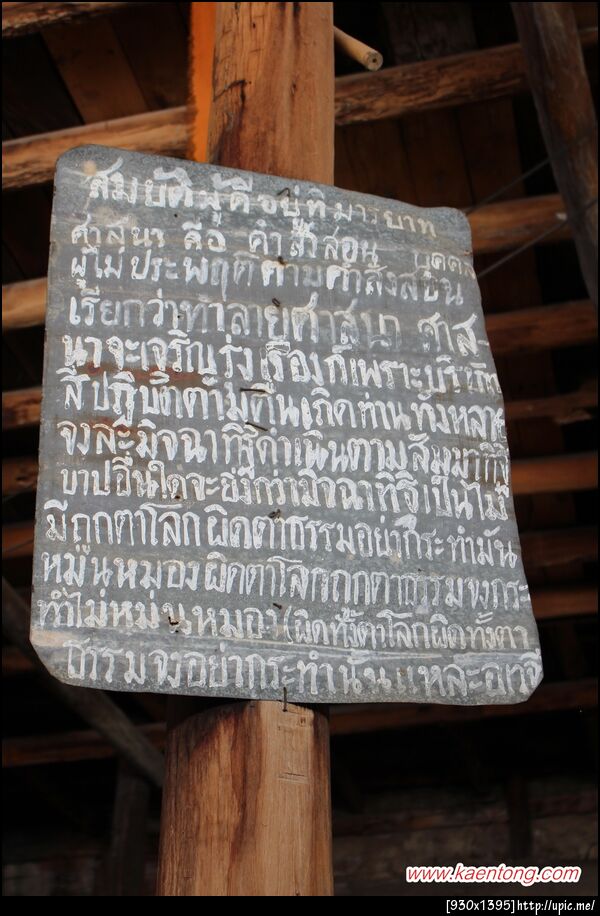 สมบัติผู้ดีอยู่ที่มารยาท
ศาสนา คือ คำสั่งสอน บุคคล
ผู้ไม่ประพฤติตามคำสั่งสอน
เรียกว่าทำลายศาสนา ศาส-
นาจะเจริญรุ่งเรืองก็เพราะบริษัท
สี่ปฎิบัติตามตื่นเถิดท่านทั้งหลาย
จงละมิจฉาทิฐิดำเนินตามสัมมาทิฐิ
บาปอื่นใดจะยิ่งกว่ามิจฉาทิฐิเป็นไม่
มีถูกตาโลกผิดตาธรรมอย่ากระทำมัน
หม่นหมองผิดตาโลกถูกตาธรรมจงกระ-
ทำไม่หม่นหมอง(ผิดทั้งตาโลกผิดทั้งตา
ธรรมจงอย่ากระทำนั้นแหละ
www.kaentong.com
[930x1395]http://upic.me/